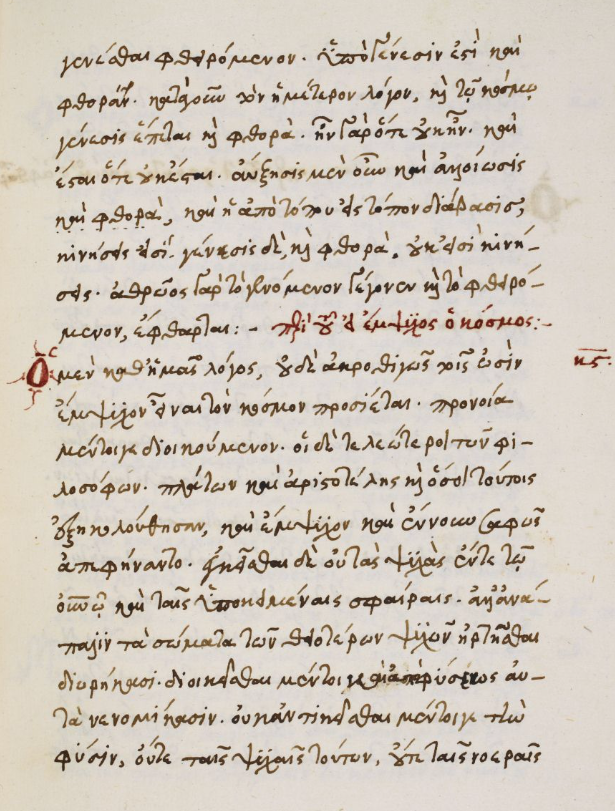 γενέσθαι φθειρόμενον. ὑπὸ γένεσίν ἐστι καὶ
φθοράν. κατὰ γοῦν τὸν ἡμέτερον λόγον, καὶ τῷ κόσμῳ
γένεσις ἕπεται καὶ φθορά. ἦν γὰρ ὅτε οὐκ ἦν. καὶ
ἔσται ὅτε οὐκ ἔσται. αὔξησις μὲν οὖν καὶ ἀλλοίωσις
καὶ φθορὰ, καὶ ἡ ἀπὸ τόπου εἰς τόπον διάβασις,
κινήσεις εἰσί. γένεσις δὲ, καὶ φθορὰ, οὐκ εἰσὶ κινή-
σεις. ἀθρῶος γὰρ τὸ γινόμενον γέγονεν καὶ τὸ φθειρό-
μενον, ἔφθαρται: - περὶ τοῦ εἰ ἔμψυχος ὁ κόσμος: -
Ὁ μὲν καθ' ἡμᾶς λόγος, οὐδὲ ἀκροθιγῶς τισὶν κς.
ἔμψυχον εἶναι τὸν κόσμον προσίεται. προνοία
μέντοιγε διοικούμενον. οἱ δὲ τελεώτεροι τῶν φι-
λοσόφων. πλάτων καὶ ἀριστοτέλης καὶ ὅσοι τούτοις
ἐξηκολούθησαν, καὶ ἔμψυχον καὶ ἔννουν σαφῶς
ἀπεφήναντο. κεῖσθαι δὲ οὐ τὰς ψυχὰς ἔν τε τῷ
οὐνῷ καὶ ταῖς ὑποκειμέναις σφαίραις. ἀλλ' ἀνά-
παλιν τὰ σώματα τῶν θειοτέρων ψυχῶν ἠρτῆσθαι
διωρήκασι. διοικεῖσθαι μέντοιγε φύσεως αὐ-
τὰ νενομίκασιν. οὐκ ἀντικεῖσθαι μέντοιγε τὴν
φύσιν, οὔτε ταῖς ψυχαῖς τούτων, οὔτε ταῖς νοεραῖς